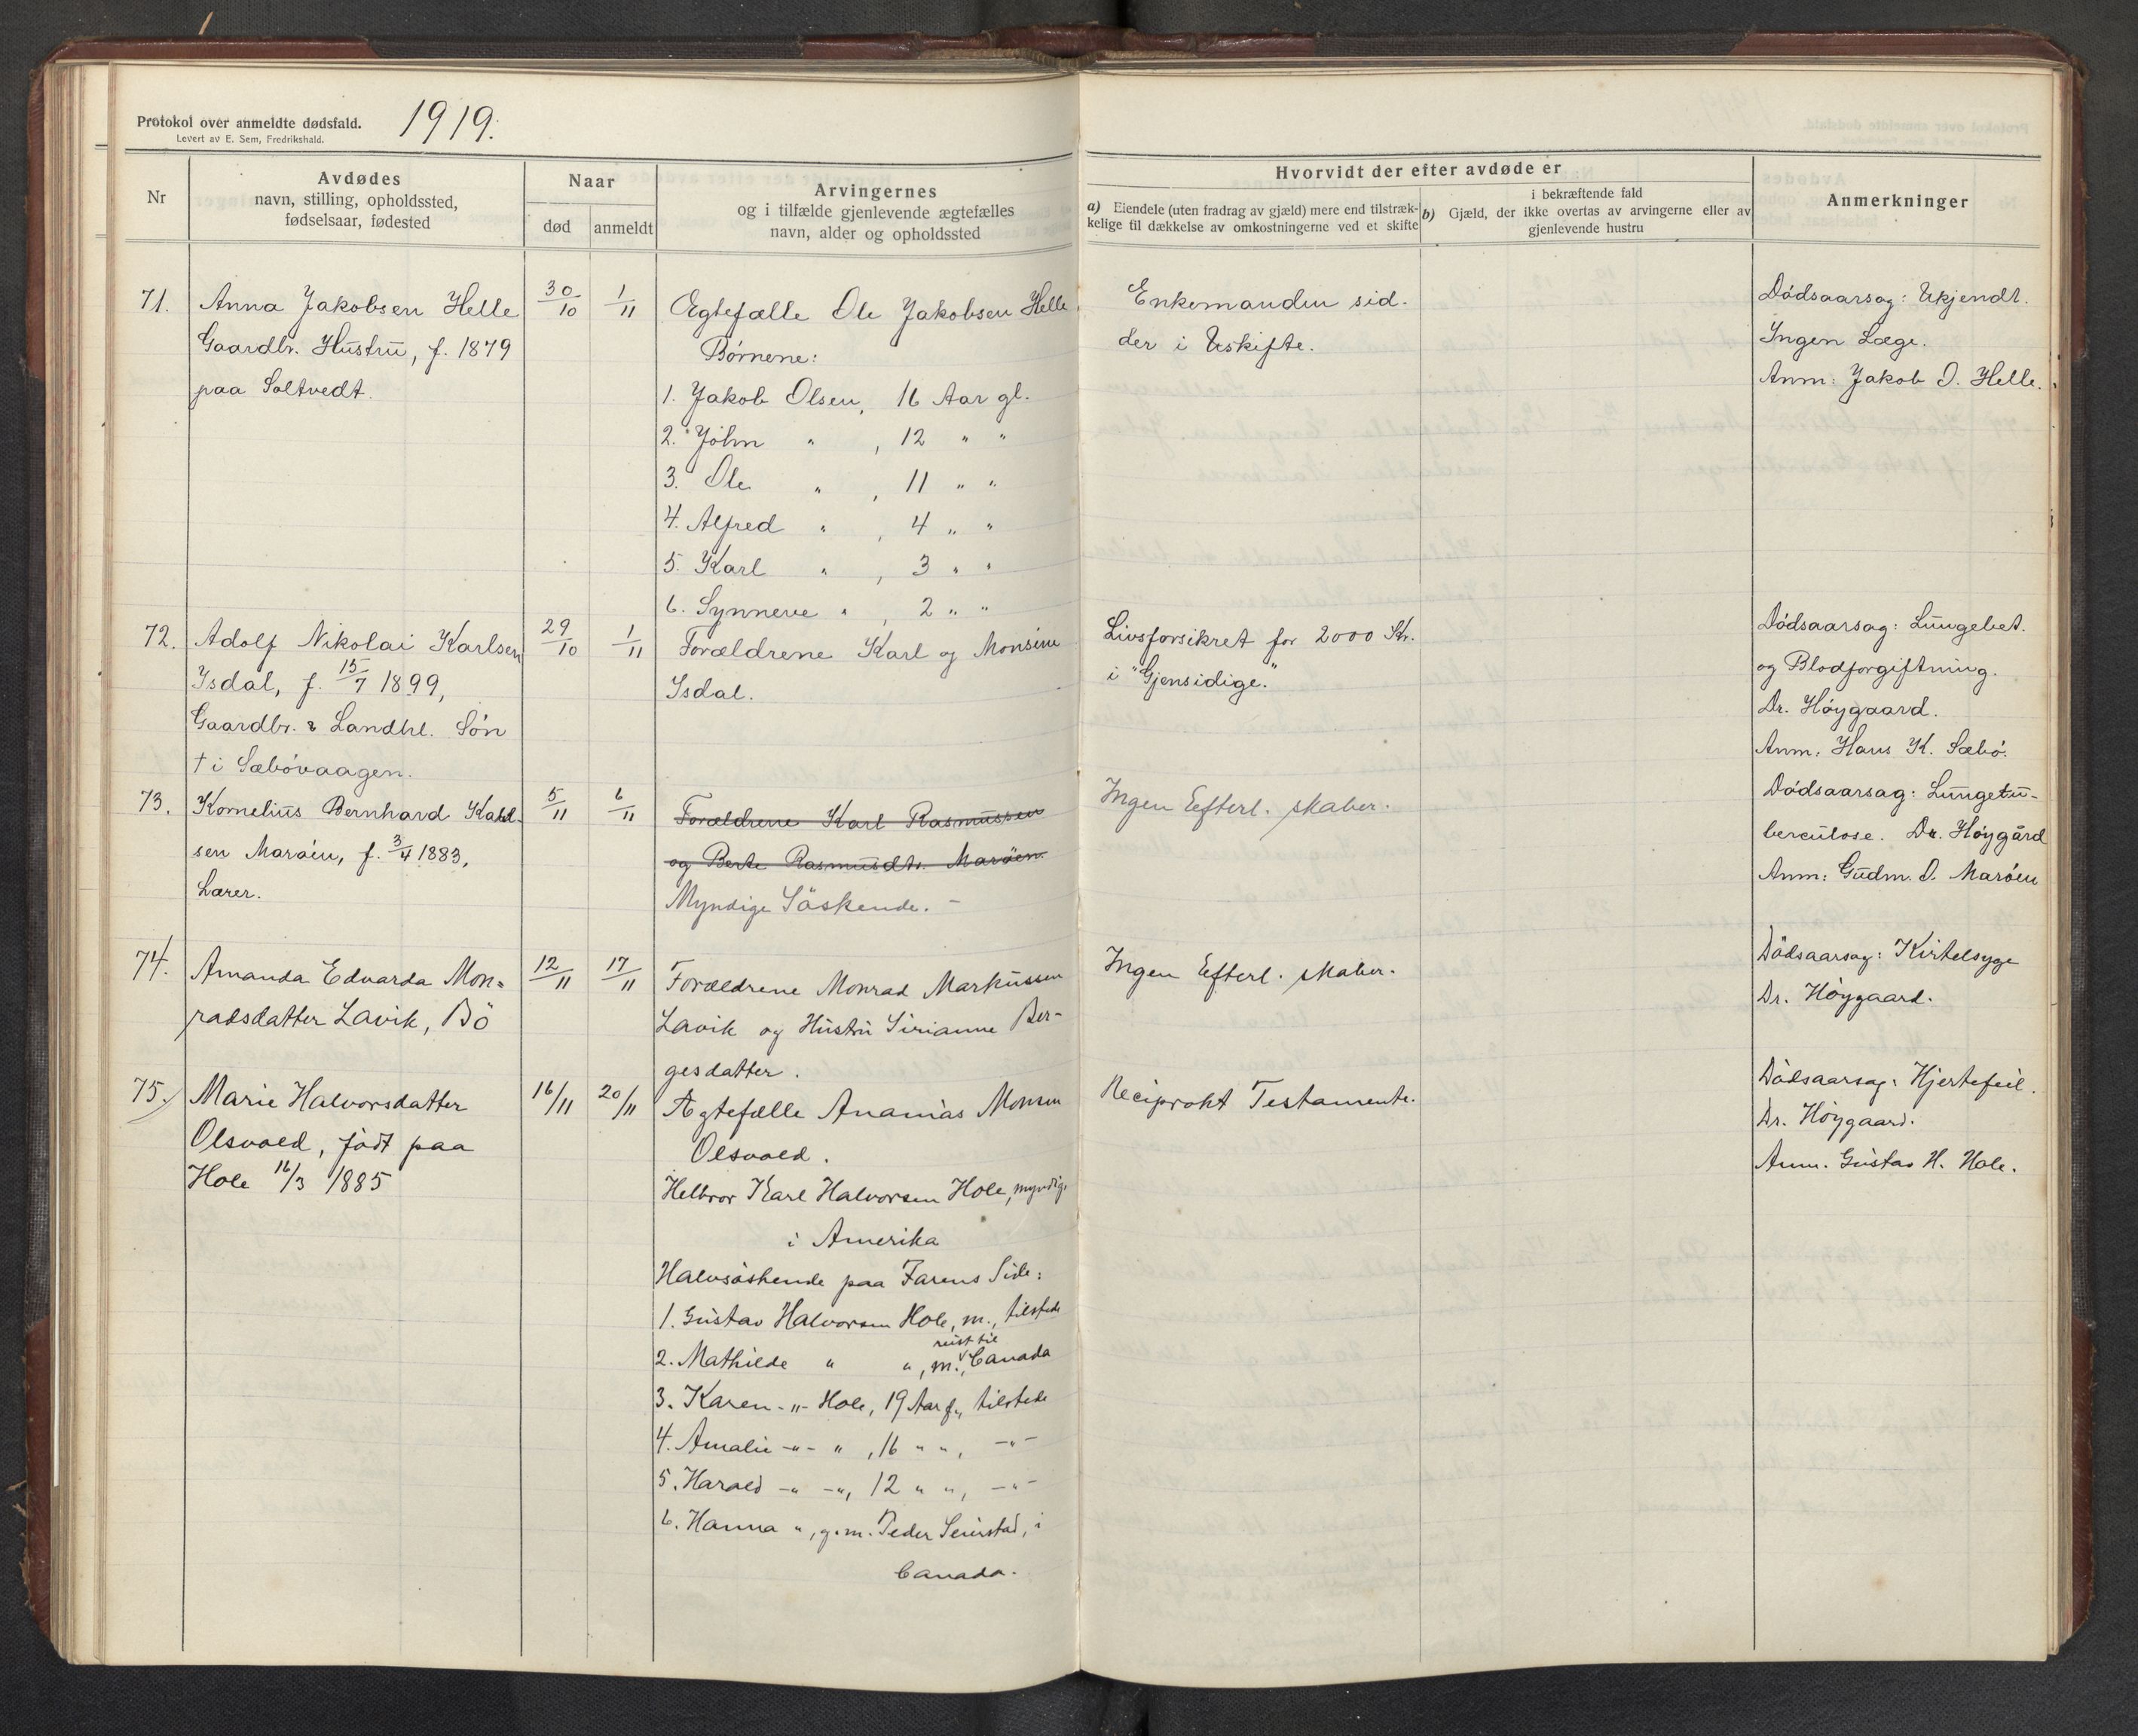 Protokol over anmeldte dødsfald.
Levert av E. Sem, Fredrikshald.
1919.
Nr
Avdødes
navn, stilling, opholdssted,
fødselsaar, fødested
Naar
død
anmeldt
Arvingernes
og i tilfælde gjenlevende ægtefælles
navn, alder og opholdssted
Hvorvidt der efter avdøde er
a) Eiendele (uten fradrag av gjæld) mere end tilstræk-
kelige til dækkelse av omkostningerne ved et skifte
i bekræftende fald
b) Gjæld, der ikke overtas av arvingerne eller av
gjenlevende hustru
Anmerkninger
71.
Anna Jakobsen Helle
Gaardbr. Hustru, f. 1879
paa Soltvedt.
30/10
1/11
Egtefælle Ole Jakobsen Helle
Børnene:
1. Jakob Olsen, 16 Aar gl.
2. John " , 12 " "
3. Ole " , 11 " "
4. Alfred " , 4 " "
5. Karl " , 3 " "
6. Synneve " , 2 " "
Enkemanden sid-
der i Uskifte.
Dødsaarsag: Ukjendt.
Ingen Læge.
Anm: Jakob O. Helle.
72.
Adolf Nikolai Karlsen
Isdal, f. 15/7 1899,
Gaardbr. & Landhl. Søn
† i Sæbövaagen.
29/10
1/11
Forældrene Karl og Monsine
Isdal.
Livsforsikret for 2000 Kr.
i "Gjensidige."
Dødsaarsag: Lungebet.
og Blodforgiftning.
Dr. Höygaard.
Anm. Hans K. Sæbö.
73.
Kornelius Bernhard Karl-
sen Maröen, f. 3/4 1883,
Lærer.
5/11
6/11
Forældrene Karl Rasmussen
og Berte Rasmusdtr. Maröen.
Myndige Söskende. -
Ingen Efterl. skaber.
Dødsaarsag: Lungetu-
berculose. Dr. Höygård
Anm: Gudm. O. Maröen
74.
Amanda Edvarda Mon=
radsdatter Lavik, Bö
12/11
17/11
Forældrene Monrad Markussen
Lavik og Hustru Sirianne Ber-
gesdatter.
Ingen Efterl. skaber.
Dödsaarsag: Kirtelsyge
Dr. Höygaard.
75.
Marie Halvorsdatter
Olsvold, födt paa
Hole 16/3 1885
16/11
20/11
Ægtefælle Ananias Monsen
Olsvold.
Helbror Karl Halvorsen Hole, myndig,
i Amerika
Halvsöskende paa Farens Side:
1. Gustav Halvorsen Hole, m., tilstede
reist til
2. Mathilde " ", m., Canada
3. Karen -"- Hole, 19 Aar g., tilstede
4. Amalie -"- " , 16 " ", -"-
5. Harald -" -", 12 " ", -"-
6. Hanna ", g. m. Peder Seimstad, i
Canada.
Reciprokt Testamente.
Dödsaarsag: Hjertefeil.
Dr. Höygaard.
Anm. Gustav H. Hole.